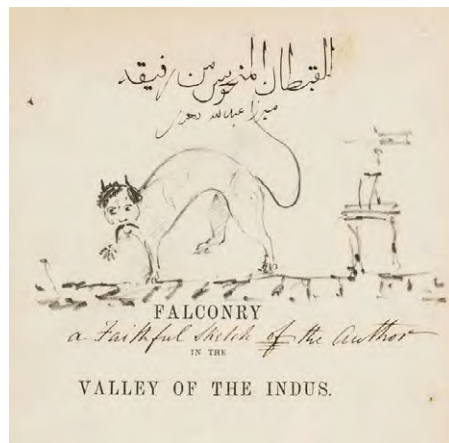 القبطان المنحوس من رفيقه
ميرزا عبدالله
FALCONRY
a Faithful Sketch of the Author
IN THE
VALLEY OF THE INDUS.